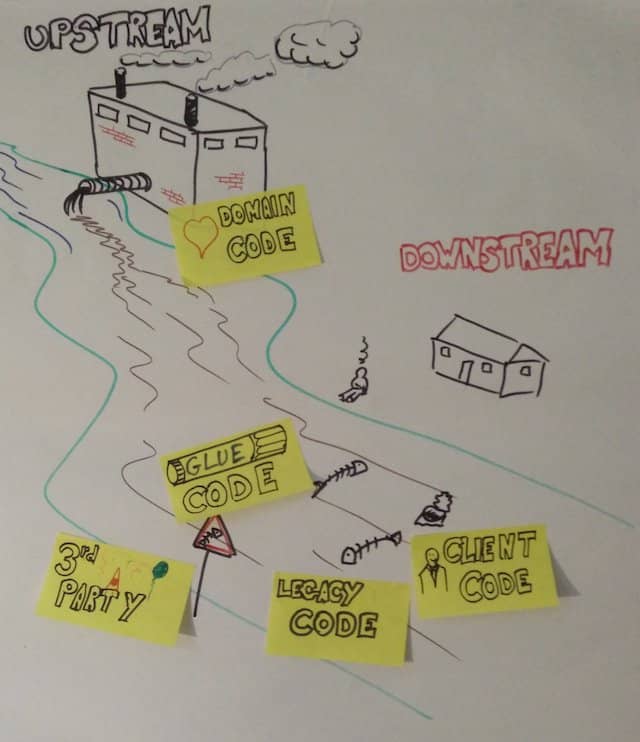 UPSTREAM
DOMAIN
CODE
DOWNSTREAM
GLUE
CODE
3rd
PARTY
LEGACY
CODE
CLIENT
CODE